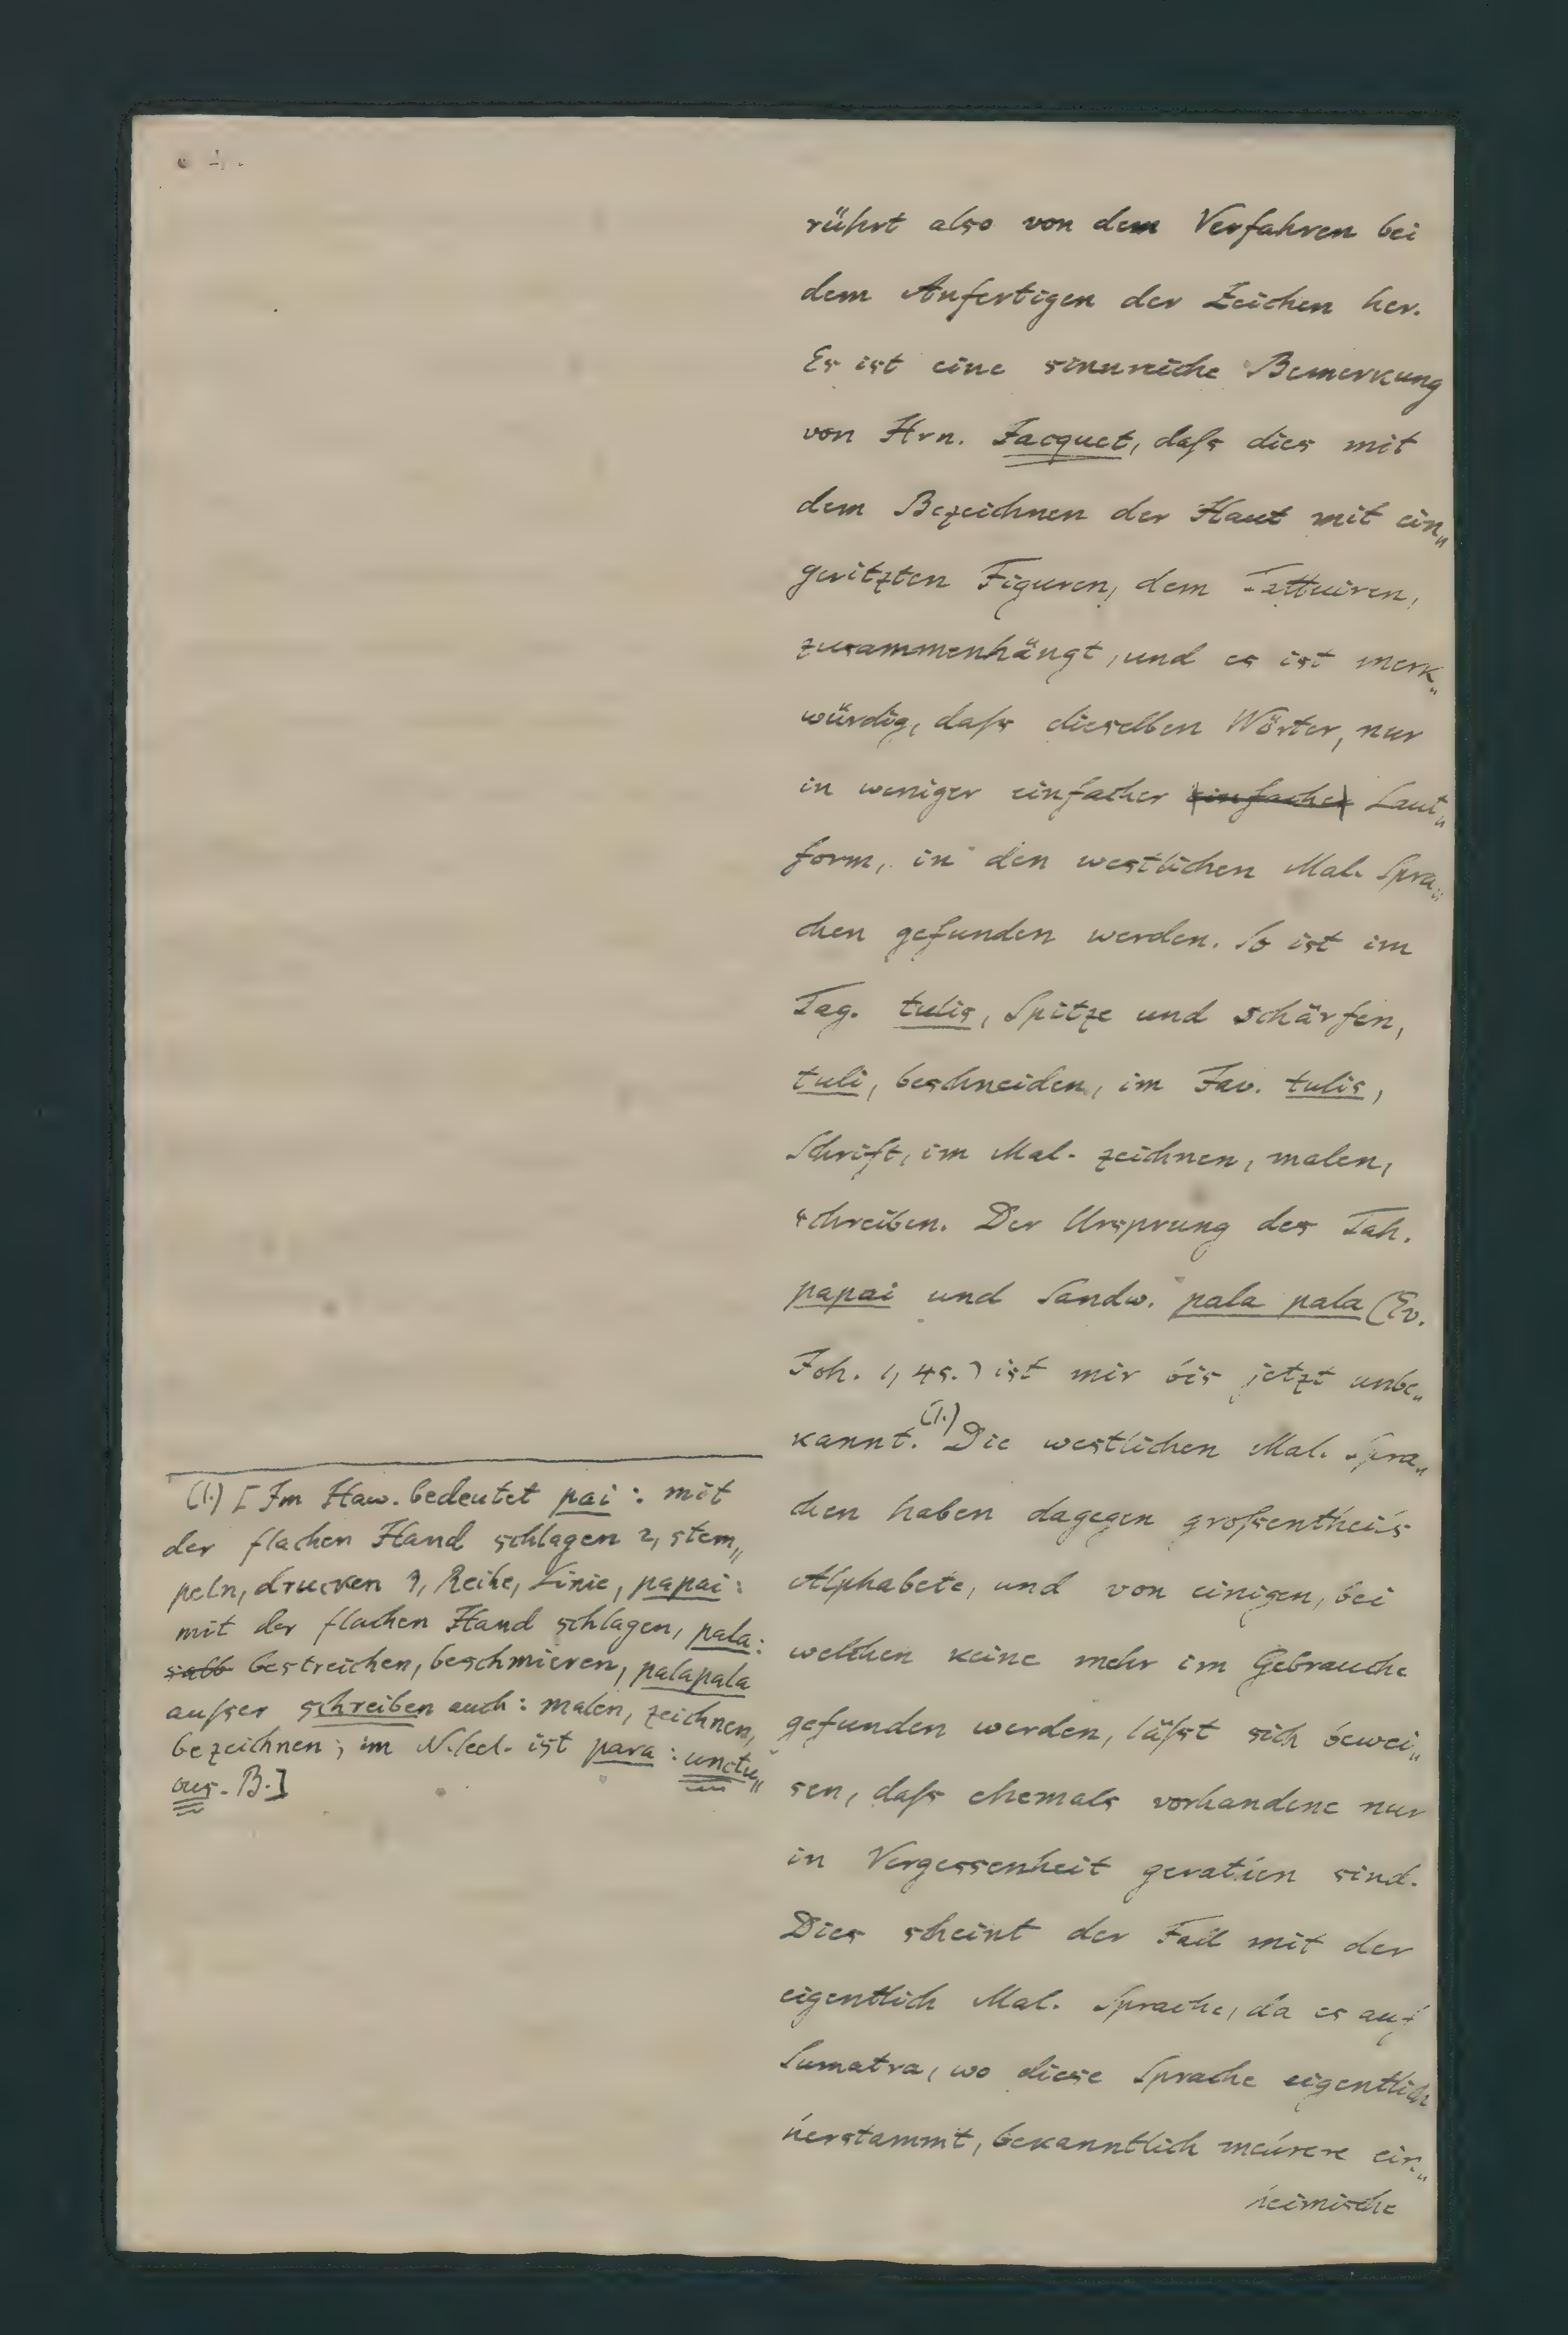 rührt also von dem Verfahren bei
dem Anfertigen der Zeichen her.
Es ist eine sinnreiche Bemerkung
von Hrn. Jacquet, daſs dies mit
dem Bezeichnen der Haut mit ein„
geritzten Figuren, dem Tattuiren,
zusammenhängt, und es ist merk„
würdig, daſs dieselben Wörter, nur
in weniger einfacher einfacher Laut„
form, in den westlichen Mal. Spra„
chen gefunden werden. So ist im
Tag. tulis, Spitze und schärfen,
tuli, beschneiden, im Jav. tulis,
Schrift, im Mal. zeichnen, malen,
schreiben. Der Ursprung des Tah.
papai und Sandw. pala pala (Ev.
Joh. 1, 45.) ist mir bis jetzt unbe„
kannt.(1.) Die westlichen Mal. Spra„
chen haben dagegen groſsentheils
Alphabete, und von einigen, bei
welchen keine mehr im Gebrauche
gefunden werden, läſst sich bewei„
sen, daſs ehemals vorhandene nur
in Vergessenheit gerathen sind.
Dies scheint der Fall mit der
eigentlich Mal. Sprache, da es auf
Sumatra, wo diese Sprache eigentlich
herstammt, bekanntlich mehrere ein„
heimische
(1.) [Im Haw. bedeutet pai: mit
der flachen Hand schlagen 2, stem„
peln, drucken 3, Reihe, Linie, papai:
mit der flachen Hand schlagen, pala:
salb bestreichen, beschmieren, palapala
auſser schreiben auch: malen, zeichnen,
bezeichnen; im N.seel. ist para: unctu„
ous. B.]